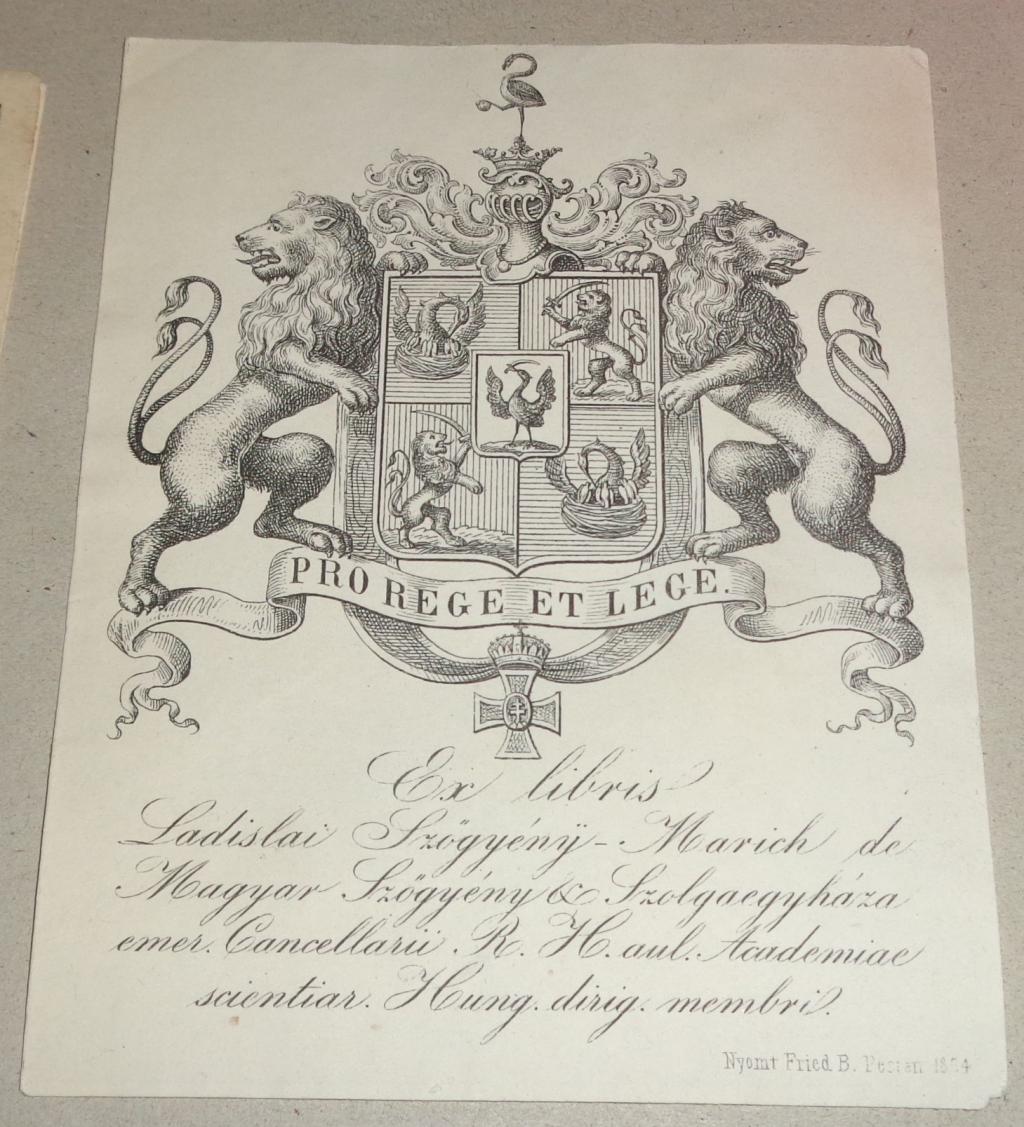 PRO REGE ET LEGE.
Ex libris
Ladislai Szögyény-Marich de
Magyar Szögyény & Szolgaegyháza
emer. Cancellarii R. H. aul. Academiae
scientiar. Hung. dirig. membri.
Nyomt Fried B. Pesten